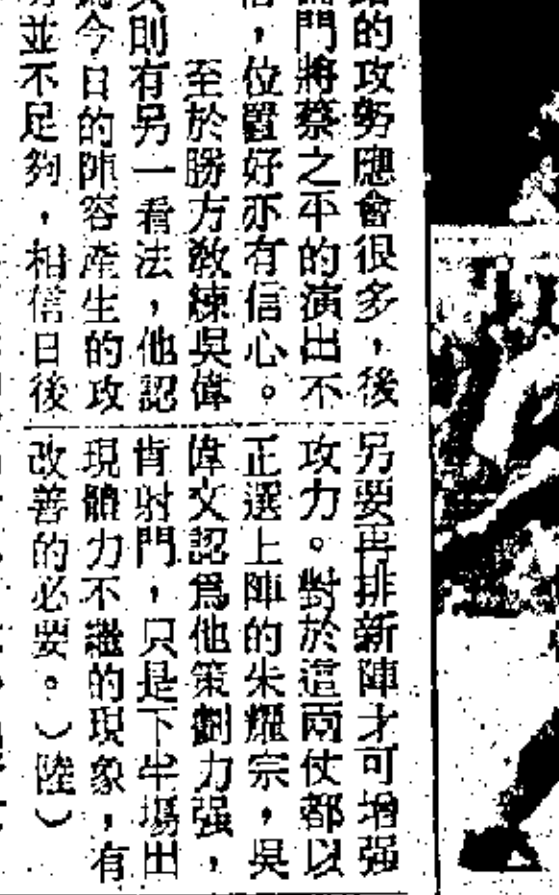 的攻勢應會很多，後
門將蔡之平的演出不
，位置好亦有信心。
至於勝方敎練吳偉
則有另一看法，他認
今日的陣容產生的攻
並不足夠，相信日後
另要再排新陣才可增强
攻力。對於這兩仗都以
正選上陣的朱耀宗，吳
偉文認爲他策劃力强，
肯射門，只是下半場出
現體力不繼的現象，有
改善的必要。（陸）